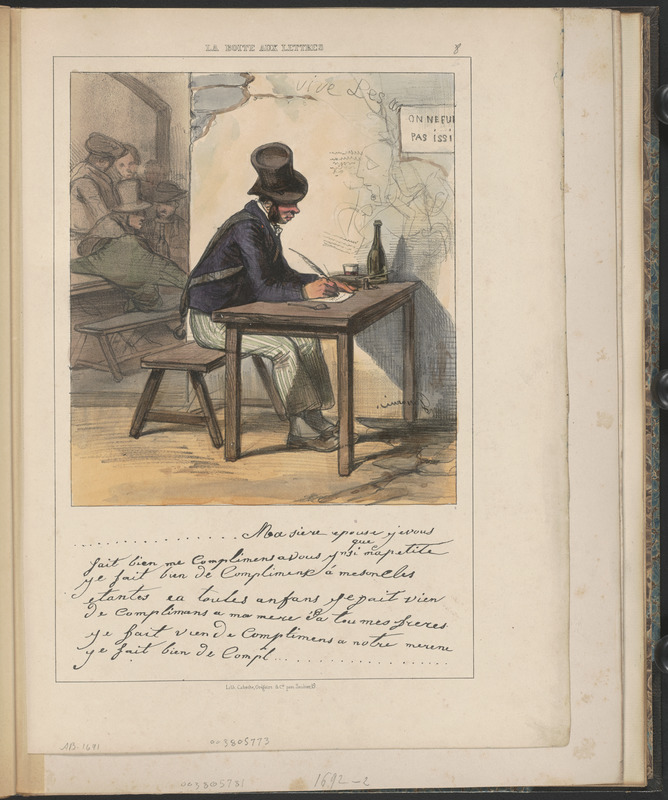 LA BOITE AUX LETTRES
8
Vive Les
ON NE FU
PAS ISSI
Ma siere epouse y'evous
fait bien me Complimens a vous ynsi que ma petite
ye fait bien de Compliment á mes oncles
etantes ea toutes anfans ye fait vien
de Complimans a ma mere éa tou mes freres
ye fait vien de Complimens a notre merene
ye fait bien de Compl...
AB. 1691
003805773
003805781
1692-2